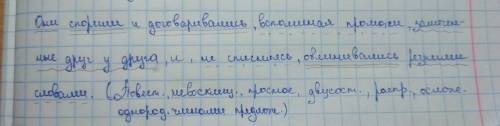 Они спорили и договаривались, вспоминая промахи, замечен-
ные друг у друга, и, не стесняясь, обменивались резкими
словами. (Повест., невосклиц., простое, двусост., распр., осложн.
однород. членами предлож.)